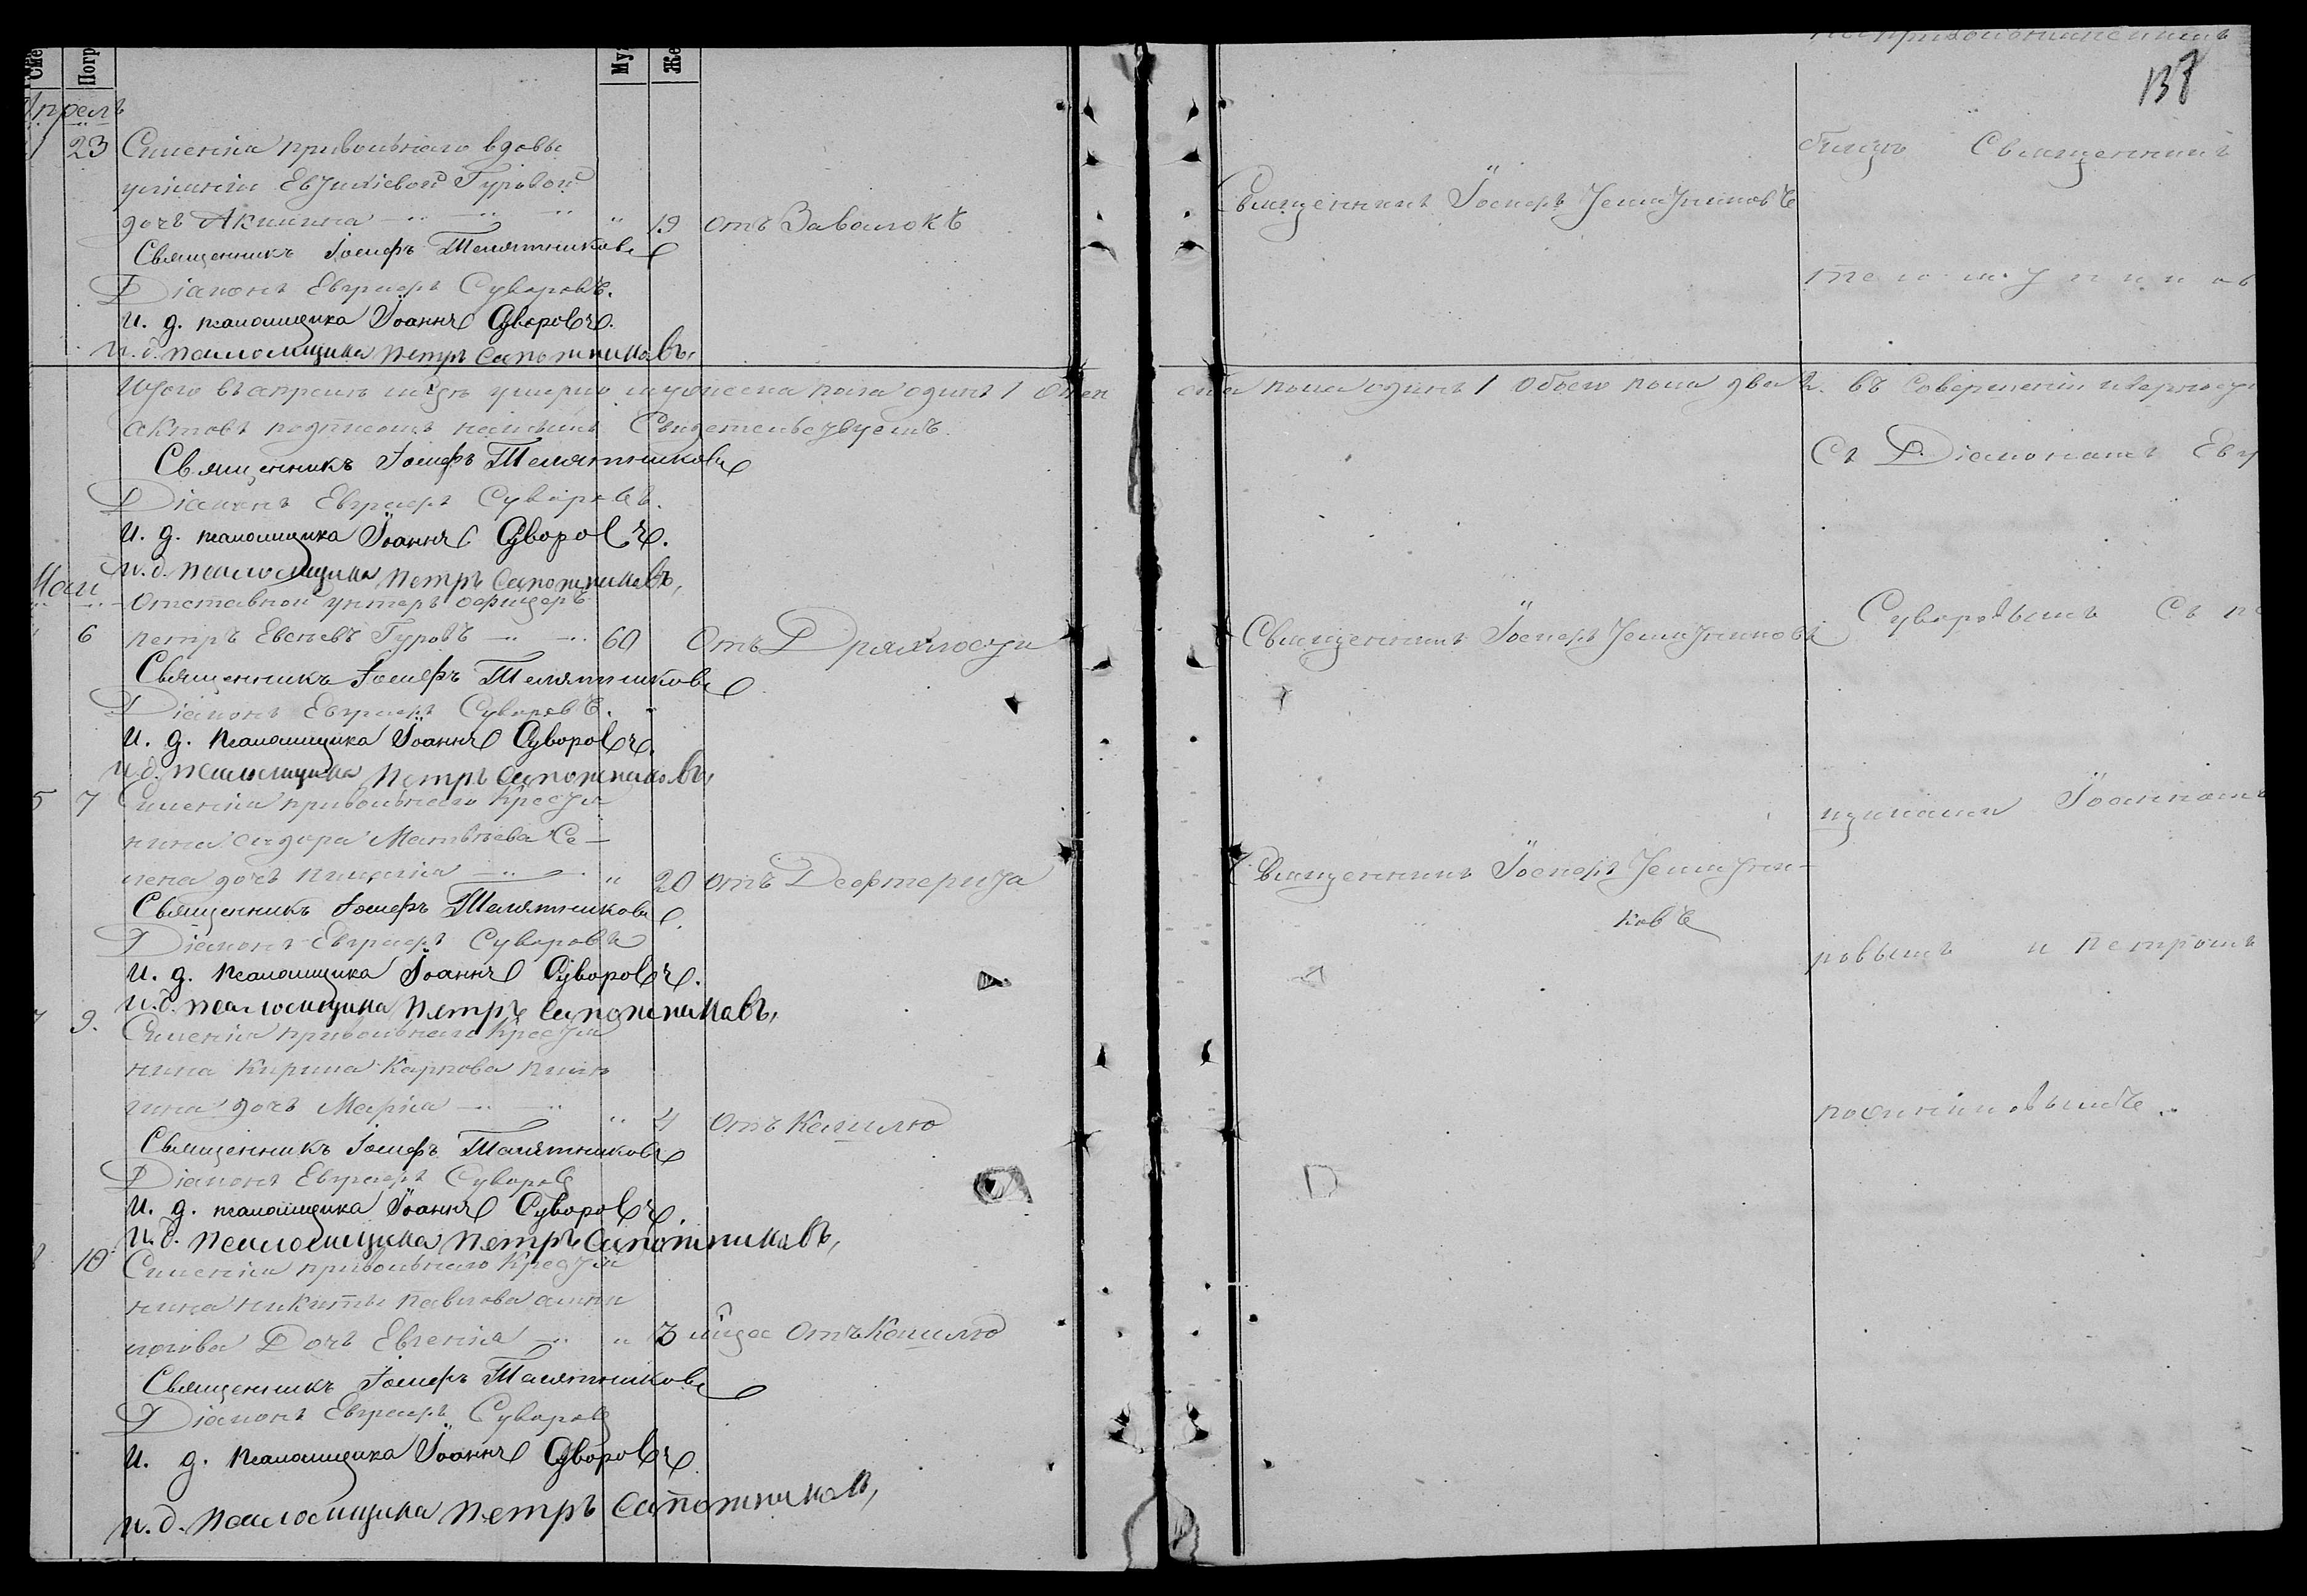 Сме
Погр
Му
Же
Апрель
23 Селенія привольнаго вдовы
Евфиміевой Гуровой
дочь Акилина " 19 отъ Завалокъ
Священникъ Іосифъ Телятниковъ
Діаконъ Евграфъ Суворовъ.
И. д. псаломщика Іоаннъ Суворовъ.
И. д. псаломщика Петръ Сапожниковъ,
Итого въ апрелѣ мцѣ умерло мужеска пола одинъ 1 женска пола одинъ 1 Обоего пола два 2. въ совершеніи
актовъ подписомъ нашимъ Свидетельствуемъ.
Священникъ Іосифъ Телятниковъ
Діаконъ Евграфъ Суворовъ.
И. д. псаломщика Іоаннъ Суворовъ.
И. д. псаломщика Петръ Сапожниковъ,
Май
Отставной унтеръ офицеръ
6 петръ Евсѣевъ Гуровъ 60 Отъ Дряхлости
Священникъ Іосифъ Телятниковъ
Діаконъ Евграфъ Суворовъ.
И. д. псаломщика Іоаннъ Суворовъ.
И. д. псаломщика Петръ Сапожниковъ,
5 7 Селенія привольнаго Крестья
нина сидора Матвѣева Се-
дочь " 20 отъ Дефтерита
Священникъ Іосифъ Телятниковъ
Діаконъ Евграфъ Суворовъ
И. д. псаломщика Іоаннъ Суворовъ.
И. д. псаломщика Петръ Сапожниковъ,
7 9. Селенія привольнаго Крестья
нина Кирила Карпова
дочь Марія " 4 Отъ Кашлю
Священникъ Іосифъ Телятниковъ
Діаконъ Евграфъ Суворовъ
И. д. псаломщика Іоаннъ Суворовъ.
И. д. псаломщика Петръ Сапожниковъ,
10 Селенія привольнаго Крестья
нина никиты павлова
Дочь Евгенія " 3 мца Отъ Кашлю
Священникъ Іосифъ Телятниковъ
Діаконъ Евграфъ Суворовъ
И. д. псаломщика Іоаннъ Суворовъ
И. д. псаломщика Петръ Сапожниковъ,
137
Священникъ Іосифъ Телятниковъ
Священникъ
Съ Діакономъ Евг
Священникъ Іосифъ Телятниковъ
Суворовымъ Съ пс
щиками Іоанномъ
Священникъ Іосифъ Телятни-
ковъ
ровымъ и петромъ